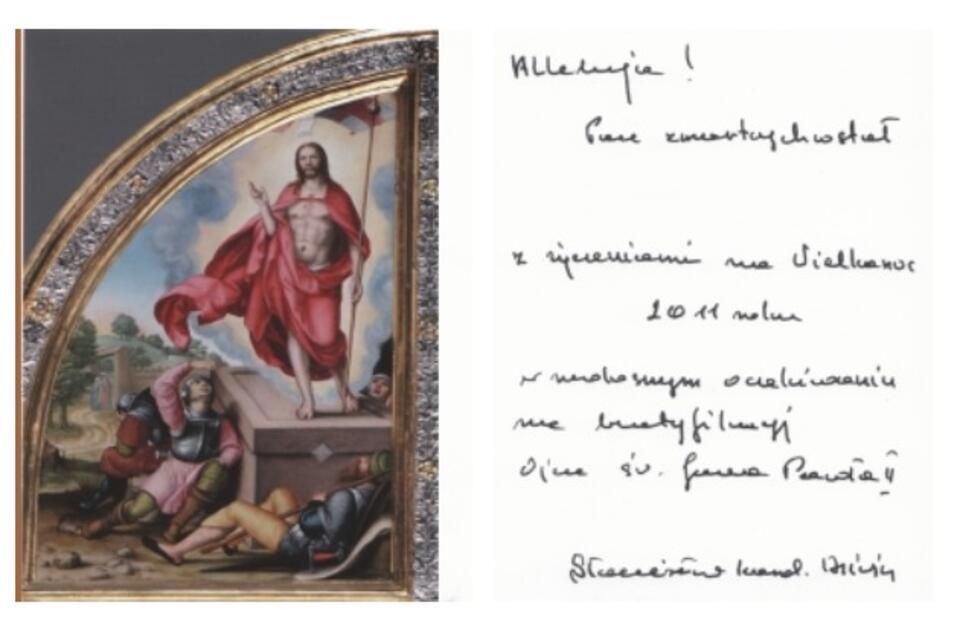 Alleluja!
Pan zmartwychwstał
z życzeniami na Wielkanoc
2011 roku
w radosnym oczekiwaniu
na beatyfikację
Ojca św. Jana Pawła II
Stanisław kard. Dziwisz